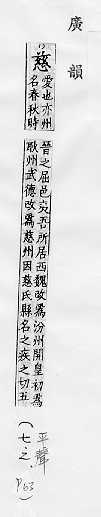 廣韻
慈
愛也亦州
名春秋時
晉之屈邑夷吾所居西魏改爲汾州開皇初爲
耿州武德改爲慈州因慈氏縣名之疾之切五
(平聲
七之、
P63)